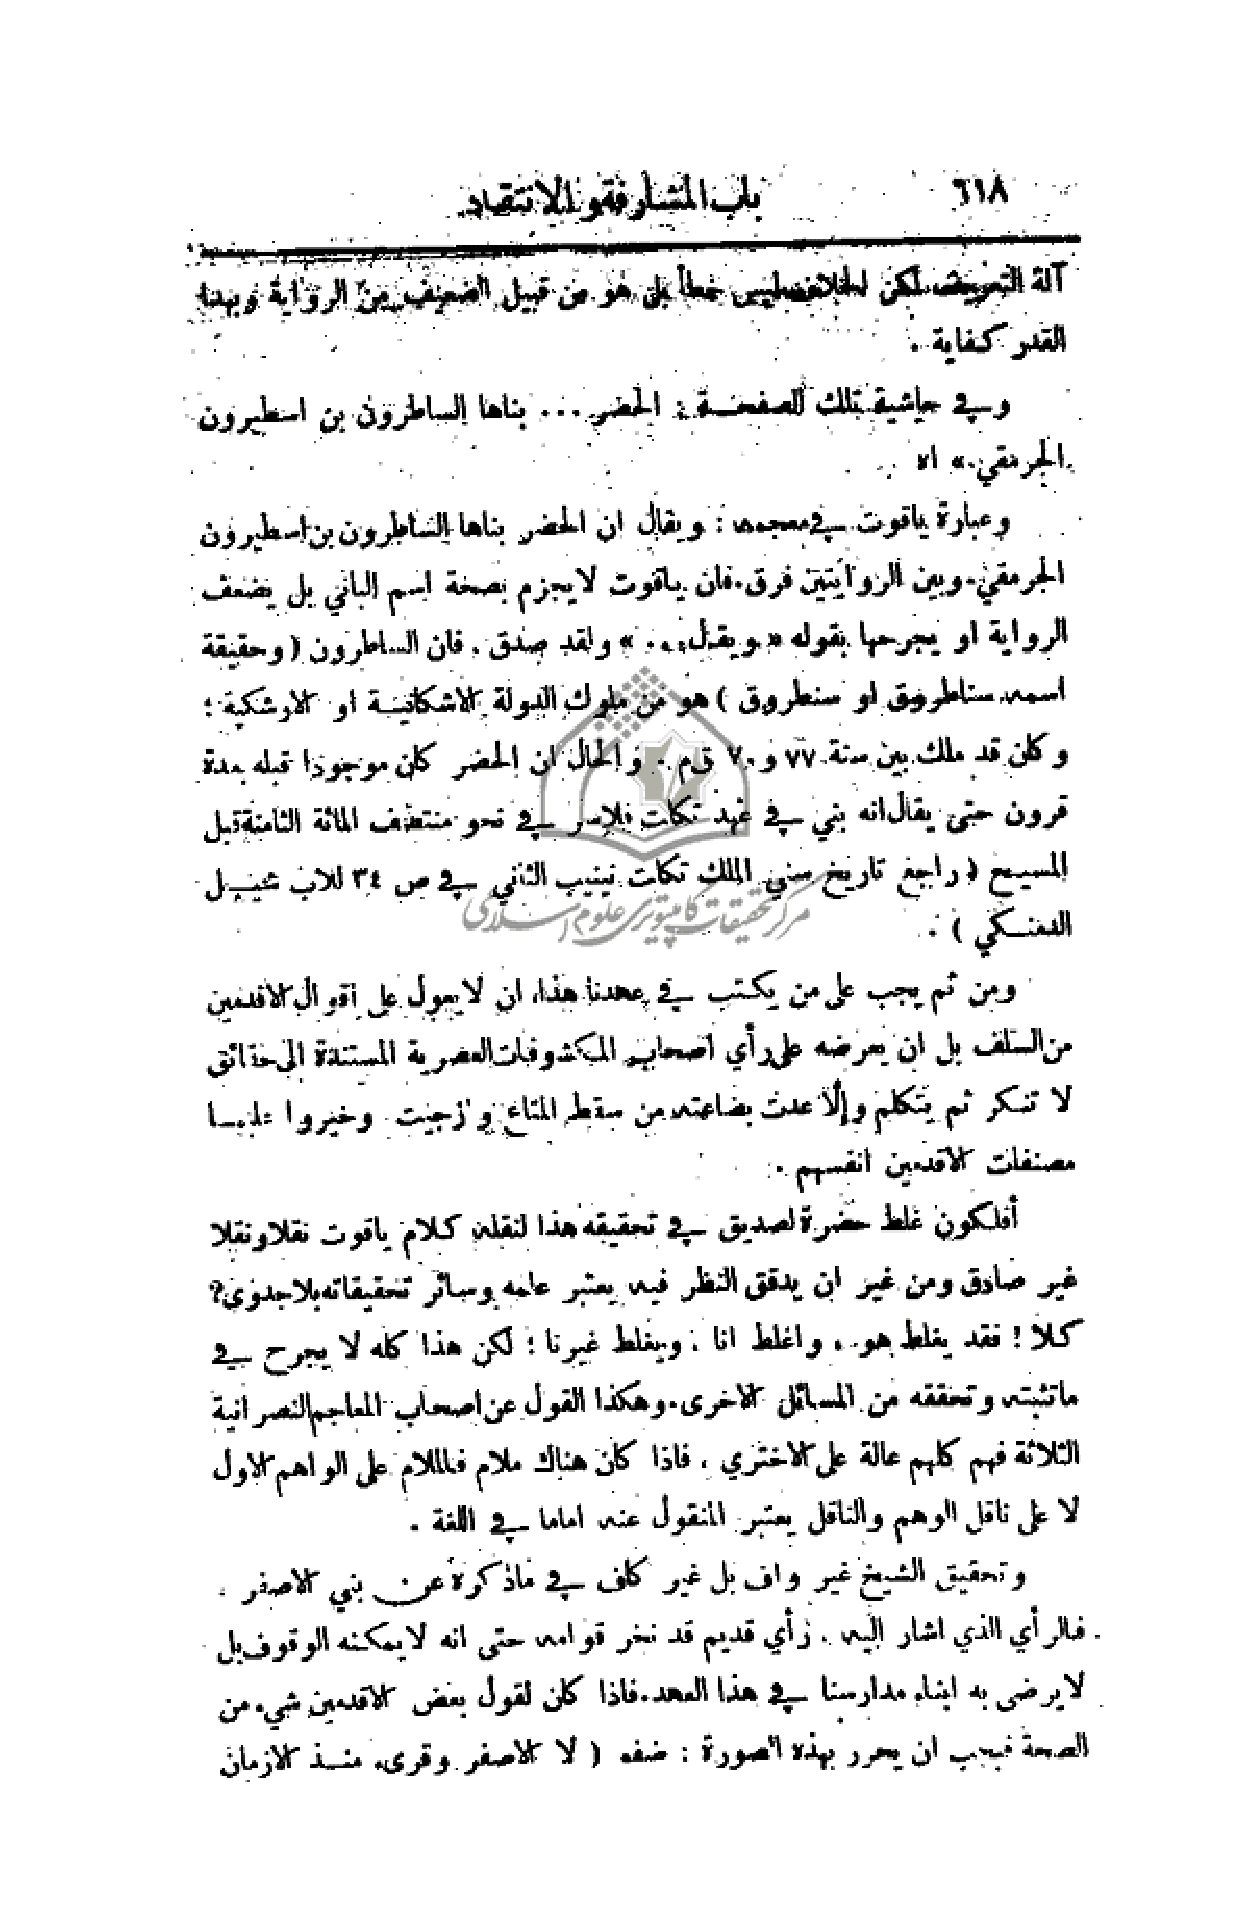 ٦١٨
باب المشارفة والانتقاد
آلة التعريف لكن الخلاف ليس خطأ بل هو من قبيل الضعيف من الرواية وبهذا
القدر كفاية .
وفي حاشية تلك الصفحة : الحضر ... بناها الساطرون بن اسطيرون
الجرمقي .» اه
وعبارة ياقوت في معجمه : ويقال ان الحضر بناها الساطرون بن اسطيرون
الجرمقي . وبين الروايتين فرق . فان ياقوت لا يجزم بصحة اسم الباني بل يضعف
الرواية او يجرحها بقوله « ويقال ... » ولقد صدق . فان الساطرون ( وحقيقة
اسمه سناطروق او سنطروق ) هو من ملوك الدولة الاشكانية او الارشكية ؛
وكان قد ملك بين سنة ٧٧ و ٧٠ ق م . والحال ان الحضر كان موجودا قبله بعدة
قرون حتى يقال انه بني في عهد تكلت فلاسر في نحو منتصف المائة الثامنة قبل
المسيح ( راجع تاريخ سني الملك تكلت نينيب الثاني في ص ٣٤ للاب شيل
الدمنكي ) .
مركز تحقیقات کامپیوتری علوم اسلامی
ومن ثم يجب على من يكتب في عهدنا هذا، ان لا يعول على اقوال الاقدمين
من السلف بل ان يعرضه على رأي اصحاب المكشوفات العصرية المستندة الى حقائق
لا تنكر ثم يتكلم وإلّا عدت بضاعته من سقط المتاع و ازجيت وخيروا عليها
مصنفات الاقدمين انفسهم .
أفلكون غلط حضرة لصديق في تحقيقه هذا لنقله كلام ياقوت نقلا ونقلا
غير صادق ومن غير ان يدقق النظر فيه يعتبر علمه وسائر تحقيقاته بلا جدوى ؟
كلا ! فقد يغلط هو . واغلط انا . ويغلط غيرنا ؛ لكن هذا كله لا يجرح في
ما تثبته وتحققه من المسائل الاخرى . وهكذا القول عن اصحاب المعاجم النصرانية
الثلاثة فهم كلهم عالة على الاختري ، فاذا كان هناك ملام فالملام على الواهم الاول
لا على ناقل الوهم والناقل يعتبر المنقول عنه اماما في اللغة .
وتحقيق الشيخ غير واف بل غير كاف في ماذكرة عن بني الاصفر .
فالرأي الذي اشار اليه . رأي قديم قد نخر قوامه حتى انه لا يمكنه الوقوف بل
لا يرضى به ابناء مدارسنا في هذا العهد . فاذا كان لقول بعض الاقدمين شيء من
الصحة فيجب ان يحرر بهذه الصورة : ضفه ( لا الاصفر وقرىء منذ الازمان